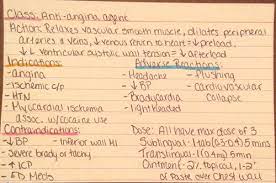 Class: Anti-angina agent
Action: Relaxes vascular smooth muscle, dilates peripheral
arteries & veins, ↓ venous return to heart = ↓ preload,
↓ ventricular systolic wall tension = ↓ afterload
Indications: Adverse Reactions:
-angina -Headache -Flushing
-ischemic c/p -↓BP -Cardiovascular
-HTN -Bradycardia collapse
-Myocardial ischemia -lightheaded
assoc. w/cocaine use
Contraindications: Dose: All have max dose of 3
-↓BP -Inferior wall MI Sublingual-1 tab (0.3-0.4) 5 mins
-Severe brady or tachy Translingual-1 (0.4mg) 5 min
-↑ICP Ointment-2% topical, 1-2"
-ED Meds of paste over Chest wall